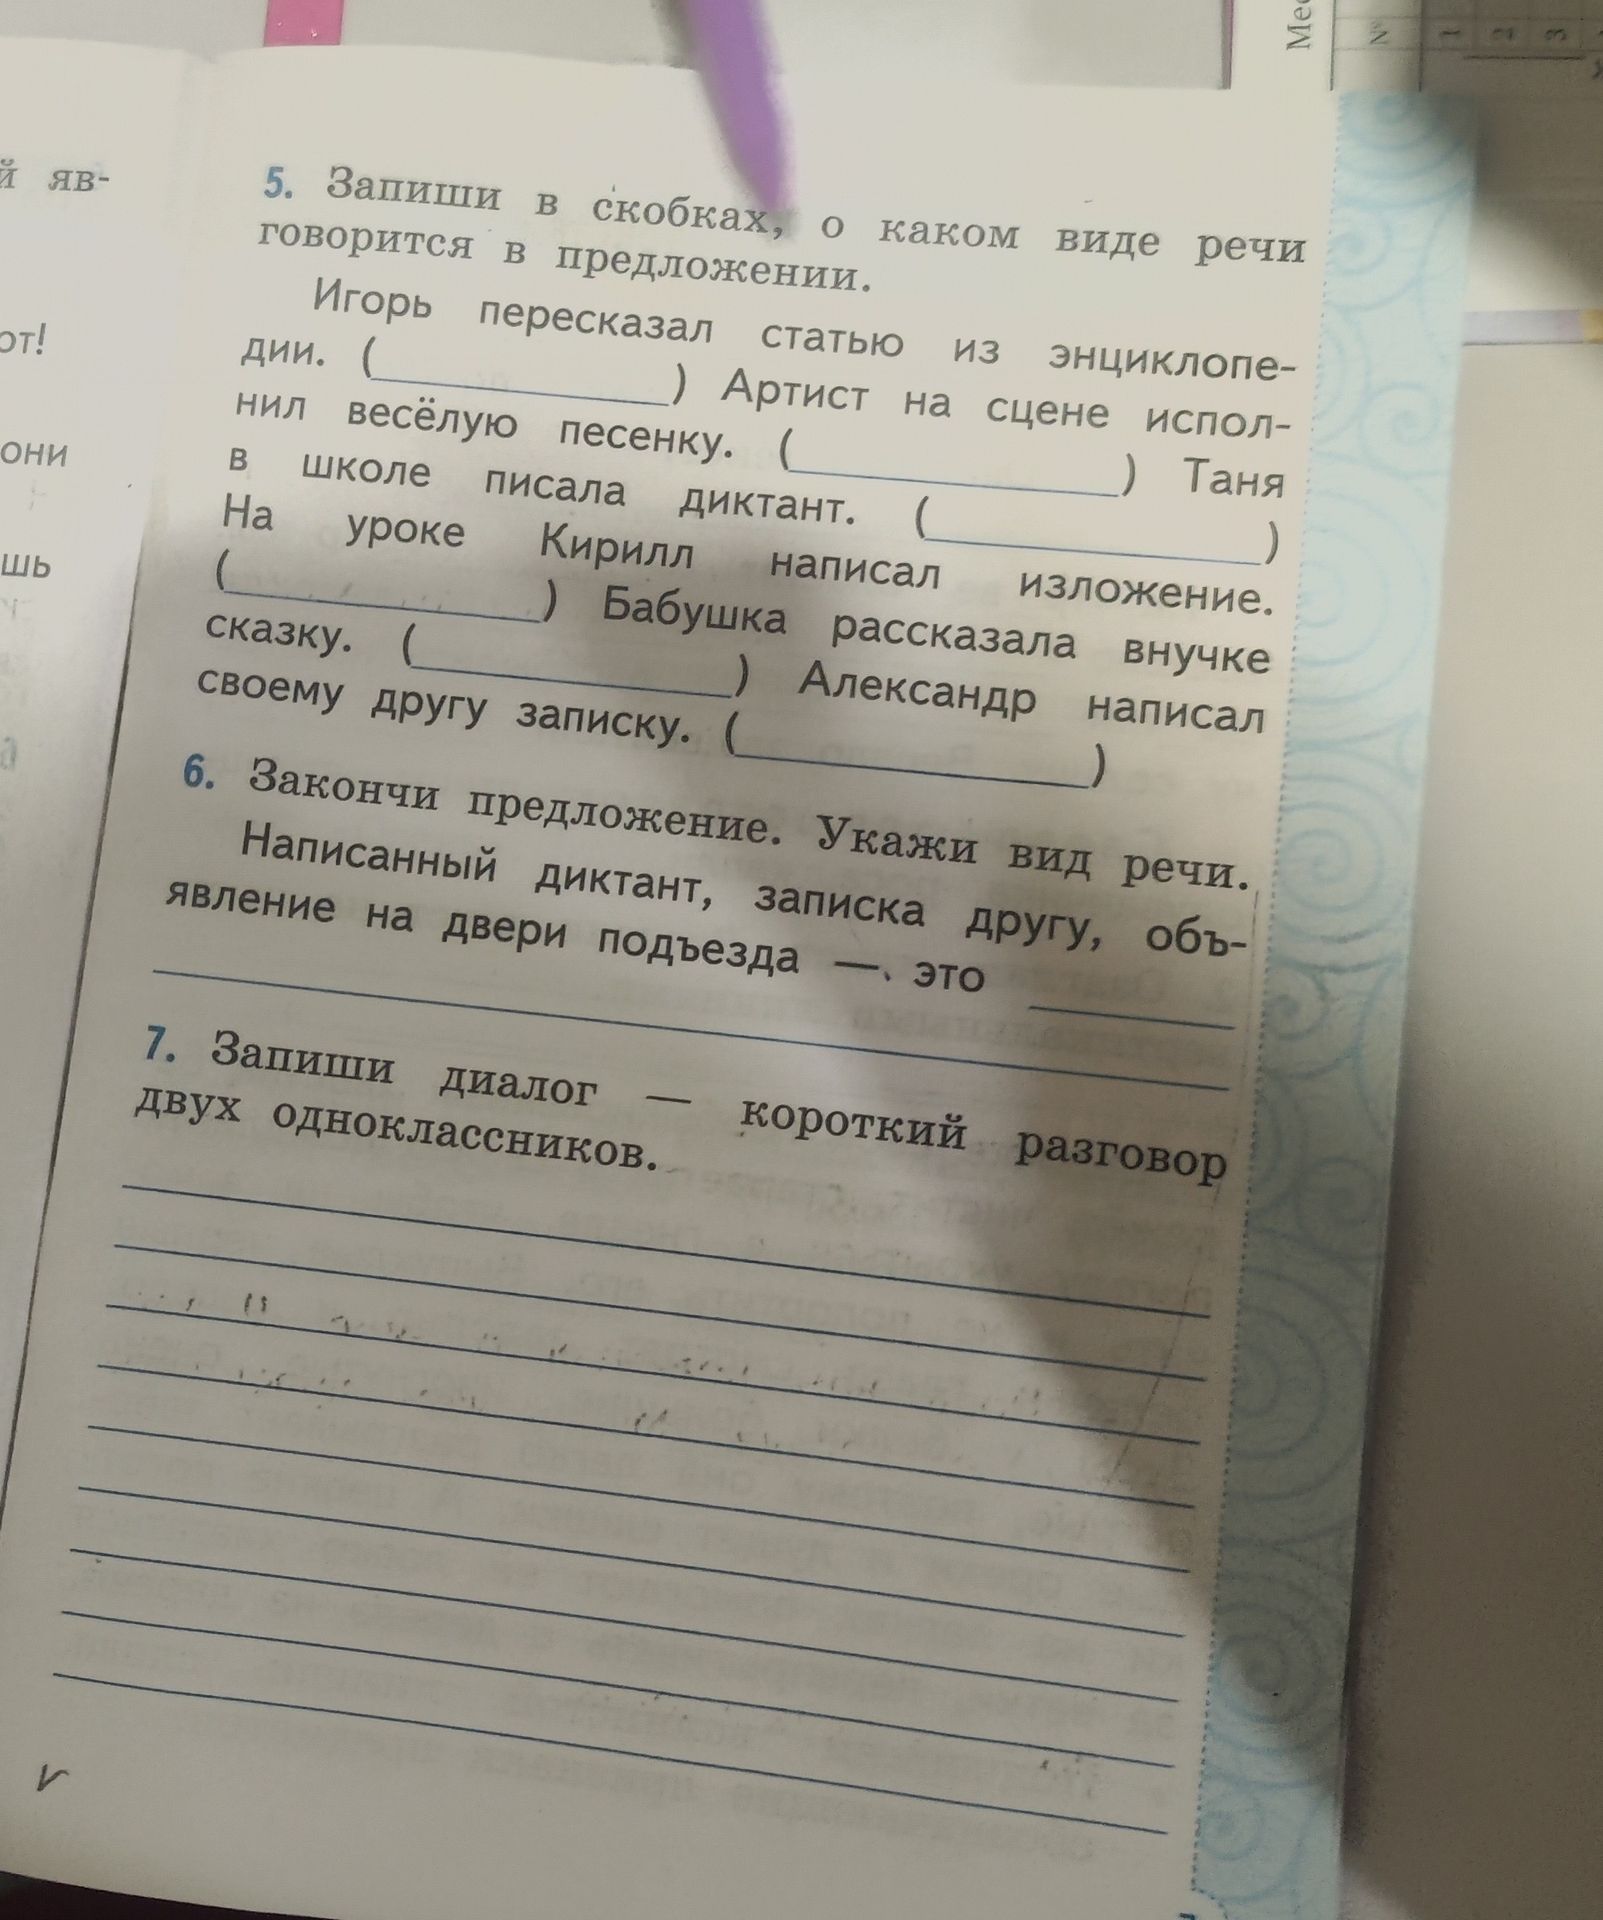 й яв-
от!
они
шь
Мес
№
1
2
3
5. Запиши в скобках, о каком виде речи
говорится в предложении.
Игорь пересказал статью из энциклопе-
дии. (____________) Артист на сцене испол-
нил весёлую песенку. (____________) Таня
в школе писала диктант. (____________)
На уроке Кирилл написал изложение.
(____________) Бабушка рассказала внучке
сказку. (____________) Александр написал
своему другу записку. (____________)
6. Закончи предложение. Укажи вид речи.
Написанный диктант, записка другу, объ-
явление на двери подъезда — это ________
7. Запиши диалог — короткий разговор
двух одноклассников.